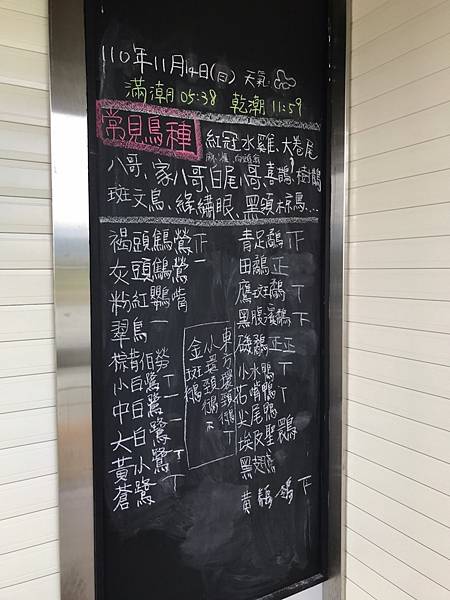 110年11月14日(日) 天氣:
滿潮 05:38 乾潮 11:59
常見鳥種
紅冠水雞、大卷尾
麻雀、白頭翁
八哥、家八哥、白尾八哥、喜鵲、樹鵲
斑文鳥、綠繡眼、黑領椋鳥...
褐頭鷦鶯 正
灰頭鷦鶯 一
粉紅鸚嘴
翠鳥 一
棕背伯勞
小白鷺 丅
中白鷺 一
大白鷺
黃小鷺 丅
蒼鷺 丅
東方環頸鴴 丅
小環頸鴴 下
金斑鴴
青足鷸 正
田鷸 正
鷹斑鷸 丅
黑腹濱鷸 下
磯鷸 正正
小水鴨 丅
花嘴鴨 丅
尖尾鴨
埃及聖䴉
黑翅鳶
黃鶺鴒 下